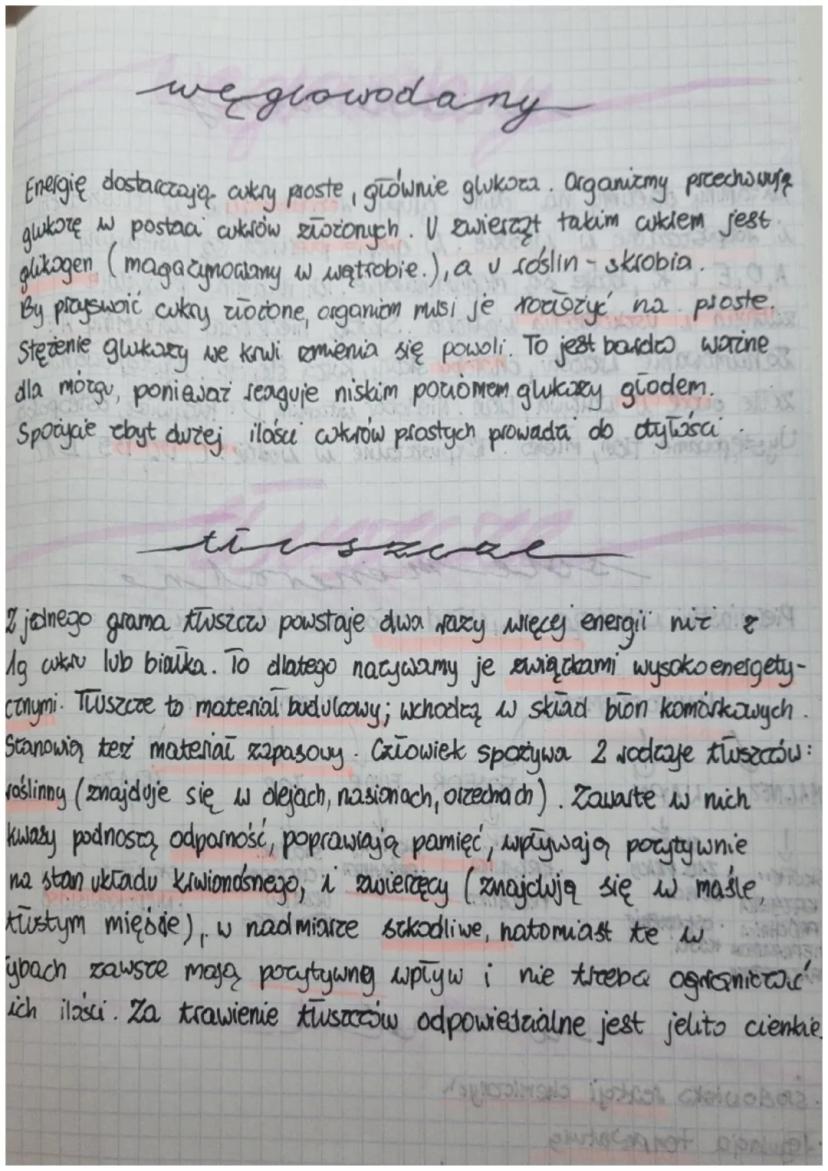 węglowodany
Energię dostarczają cukry proste, głównie glukoza. Organizmy przechowują
glukozę w postaci cukrów złożonych. U zwierząt takim cukrem jest
glikogen (magazynowany w wątrobie.), a u roślin - skrobia.
By przyswoić cukry złożone, organizm musi je rozłożyć na proste.
Stężenie glukozy we krwi zmienia się powoli. To jest bardzo ważne
dla mózgu, ponieważ reaguje niskim poziomem glukozy głodem.
Spożycie zbyt dużej ilości cukrów prostych prowadzi do otyłości.
tłuszcze
Z jednego grama tłuszczu powstaje dwa razy więcej energii niż z
1g cukru lub białka. To dlatego nazywamy je związkami wysokoenergety-
cznymi. Tłuszcze to materiał budulcowy; wchodzą w skład błon komórkowych.
Stanowią też materiał zapasowy. Człowiek spożywa 2 rodzaje tłuszczów:
roślinny (znajduje się w olejach, nasionach, orzechach). Zawarte w nich
kwasy podnoszą odporność, poprawiają pamięć, wpływają pozytywnie
na stan układu krwionośnego, i zwierzęcy (znajdują się w maśle,
tłustym mięsie), w nadmiarze szkodliwe, natomiast te w
rybach zawsze mają pozytywny wpływ i nie trzeba ograniczać
ich ilości. Za trawienie tłuszczów odpowiedzialne jest jelito cienkie.